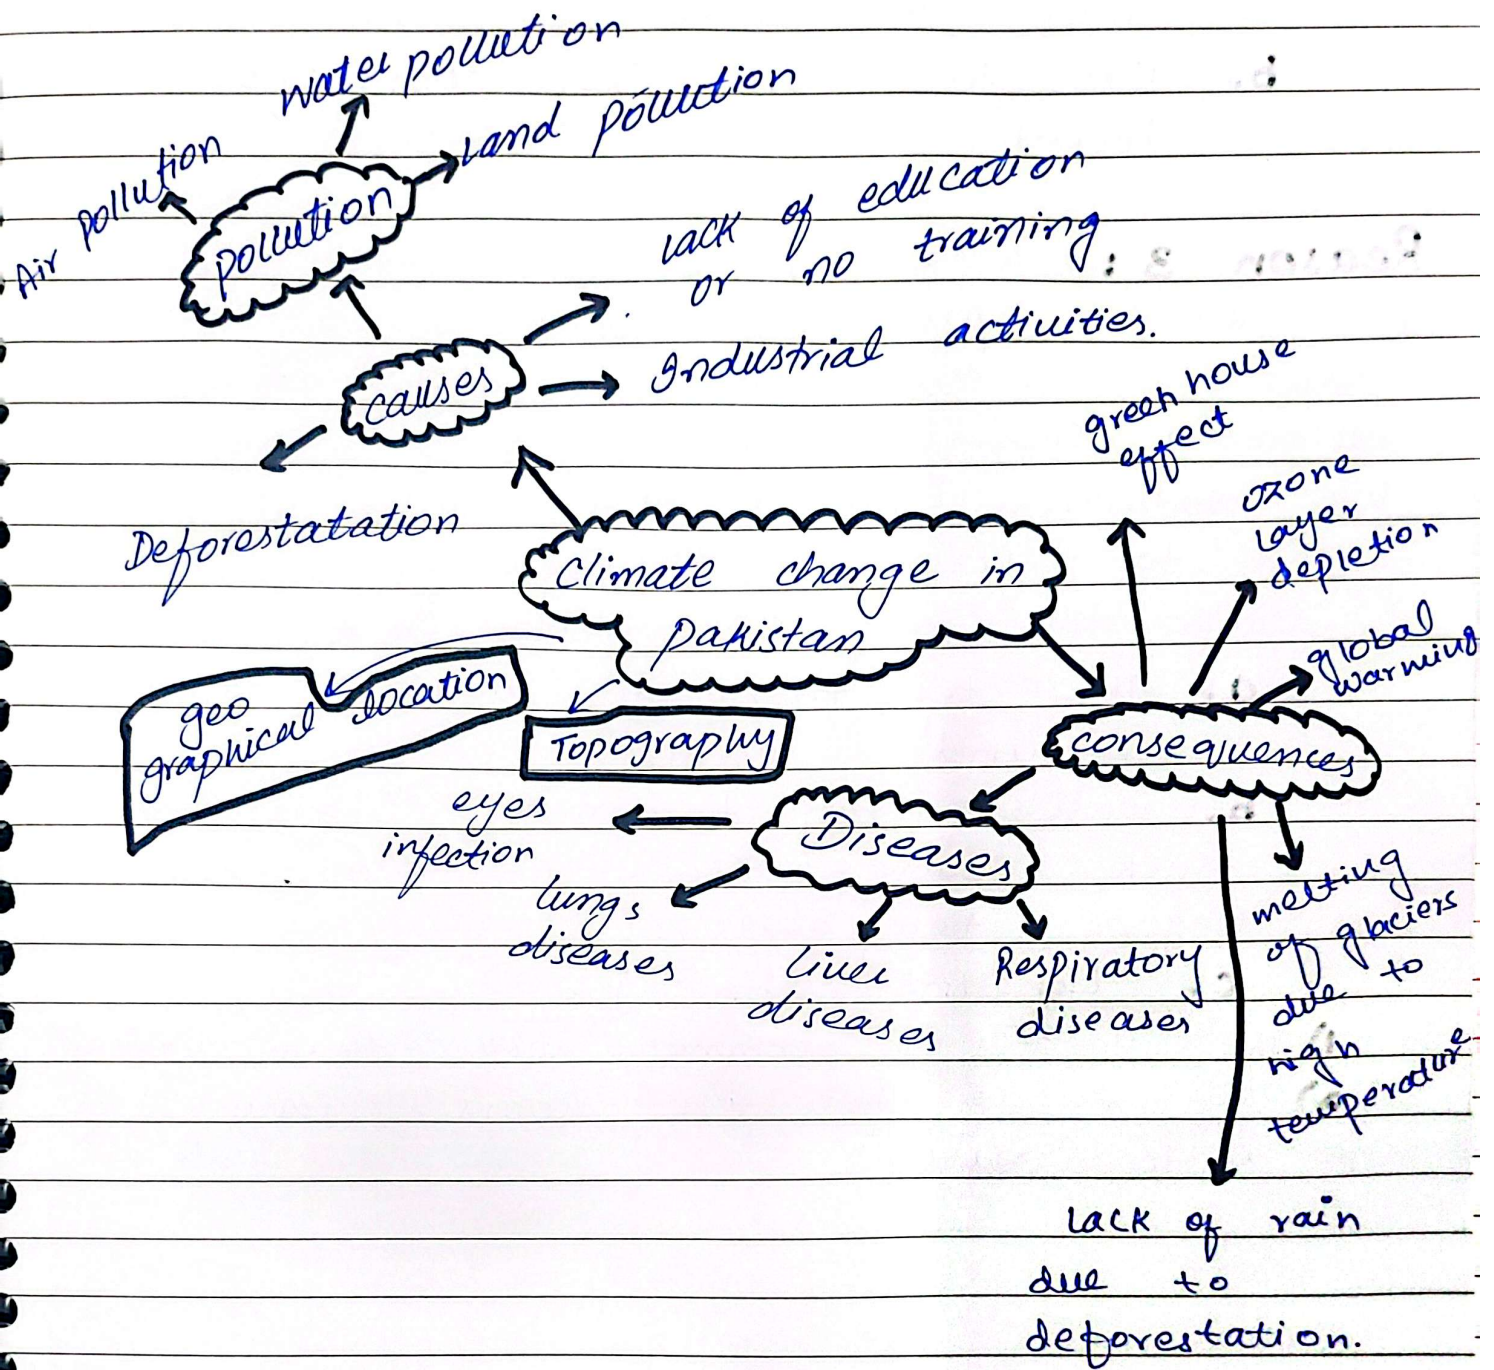 water pollution
Land pollution
Air pollution
pollution
lack of education
or no training
Industrial activities.
causes
Deforestatation
green house
effect
ozone
layer
depletion
global
warming
Climate change in
pakistan
geo
graphical location
Topography
consequences
Diseases
eyes
infection
lungs
diseases
liver
diseases
Respiratory
diseases
melting
of glaciers
due to
high
temperature
lack of rain
due to
deforestation.